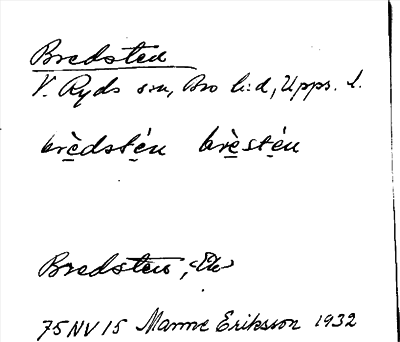 Bredsten
V. Ryds sn, Bro h:d, Upps. l.
brèdstén brèstén
Bredsten,
75 NV 15 Manne Eriksson 1932